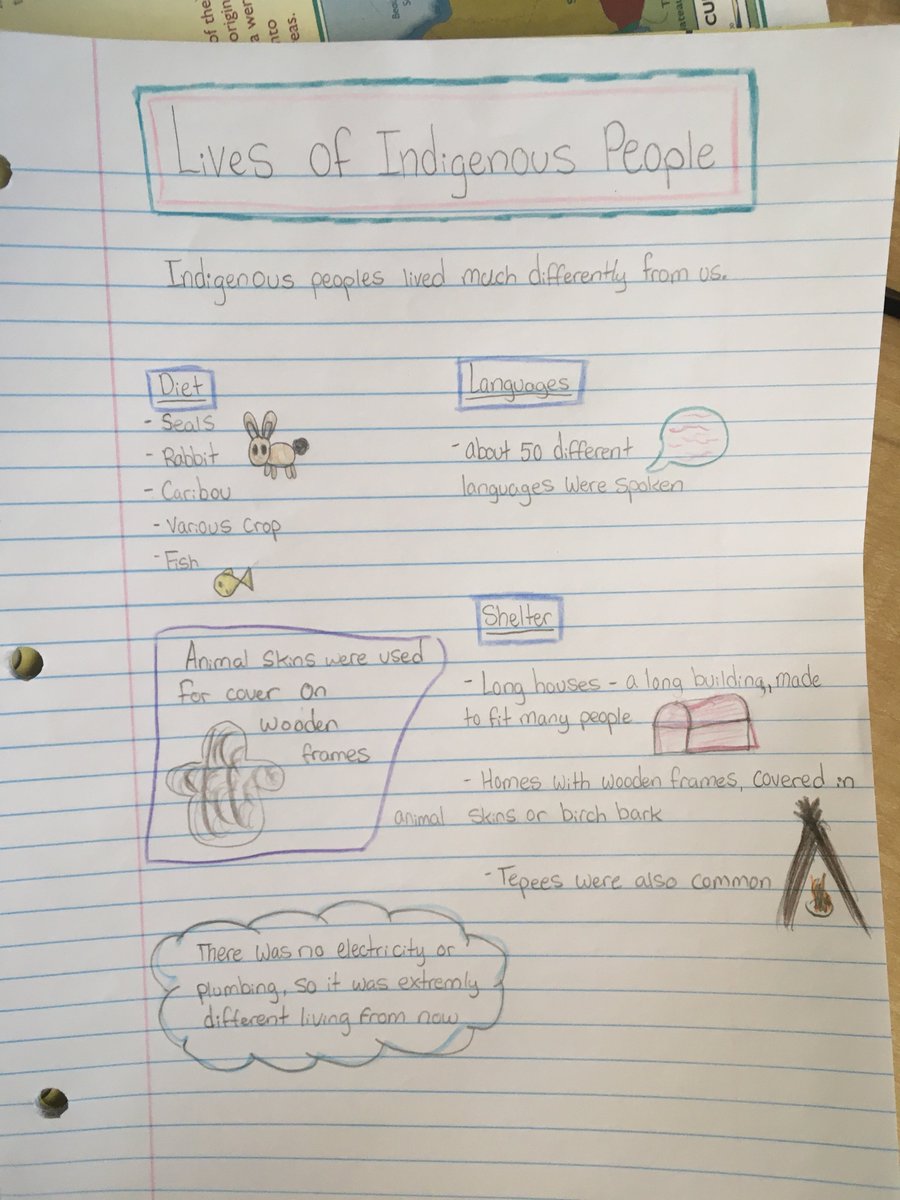 of the
origin
a wer
nto
eas.
Lives of Indigenous People
Indigenous peoples lived much differently from us.
Diet
- Seals
- Rabbit
- Caribou
- Various Crop
- Fish
Languages
- about 50 different
languages were spoken
Animal skins were used
for cover on
wooden
frames
Shelter
- Long houses - a long building, made
to fit many people
- Homes with wooden frames, covered in
animal skins or birch bark
- Tepees were also common
There was no electricity or
plumbing, so it was extremly
different living from now